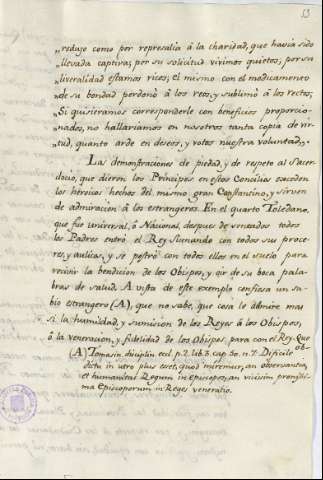 53
„redujo como por represalia á la charidad, que havia sido
„llevada captiva; por su solicitud vivimos quietos, por su
„liveralidad estamos ricos; él mismo con el medicamento
„de su bondad perdonó á los reos, y sublimó á los rectos;
„Si quisieramos corresponderle con beneficios proporcio-
„nados, no hallariamos en nosotros tanta copia de vir-
„tud, quanto arde en deseos, y votos nuestra voluntad„.
Las demonstraciones de piedad, y de respeto al Sacer-
docio, que dieron los Principes en estos Concilios exceden
los heroicos hechos del mismo gran Constantino, y sirven
de admiracion à los estrangeros. En el quarto Toledano,
que fue universal, ó Nacional, despues de sentados todos
los Padres entró el Rey Sisnando con todos sus proce-
res, y aulicos, y se postró con todos ellos en el suelo para
recivir la bendicion de los Obispos, y oir de su boca pala-
bras de salud. A vista de este exemplo confiesa un sa-
bio estrangero (A), que no sabe, que cosa le admire mas
si la humildad, y sumision de los Reyes á los Obispos,
ó la veneracion, y fidelidad de los Obispos para con el Rey. Que
ob-
(A) Tomasin. disciplin. eccl. p. 2. lib. 3. cap. 50. n. 7. Dificile
dictu in utro plus esset, quod miremur, an observantia,
et humanitas Regum in Episcopos, an vicisim pronissi-
ma Episcoporum in Reges veneratio.